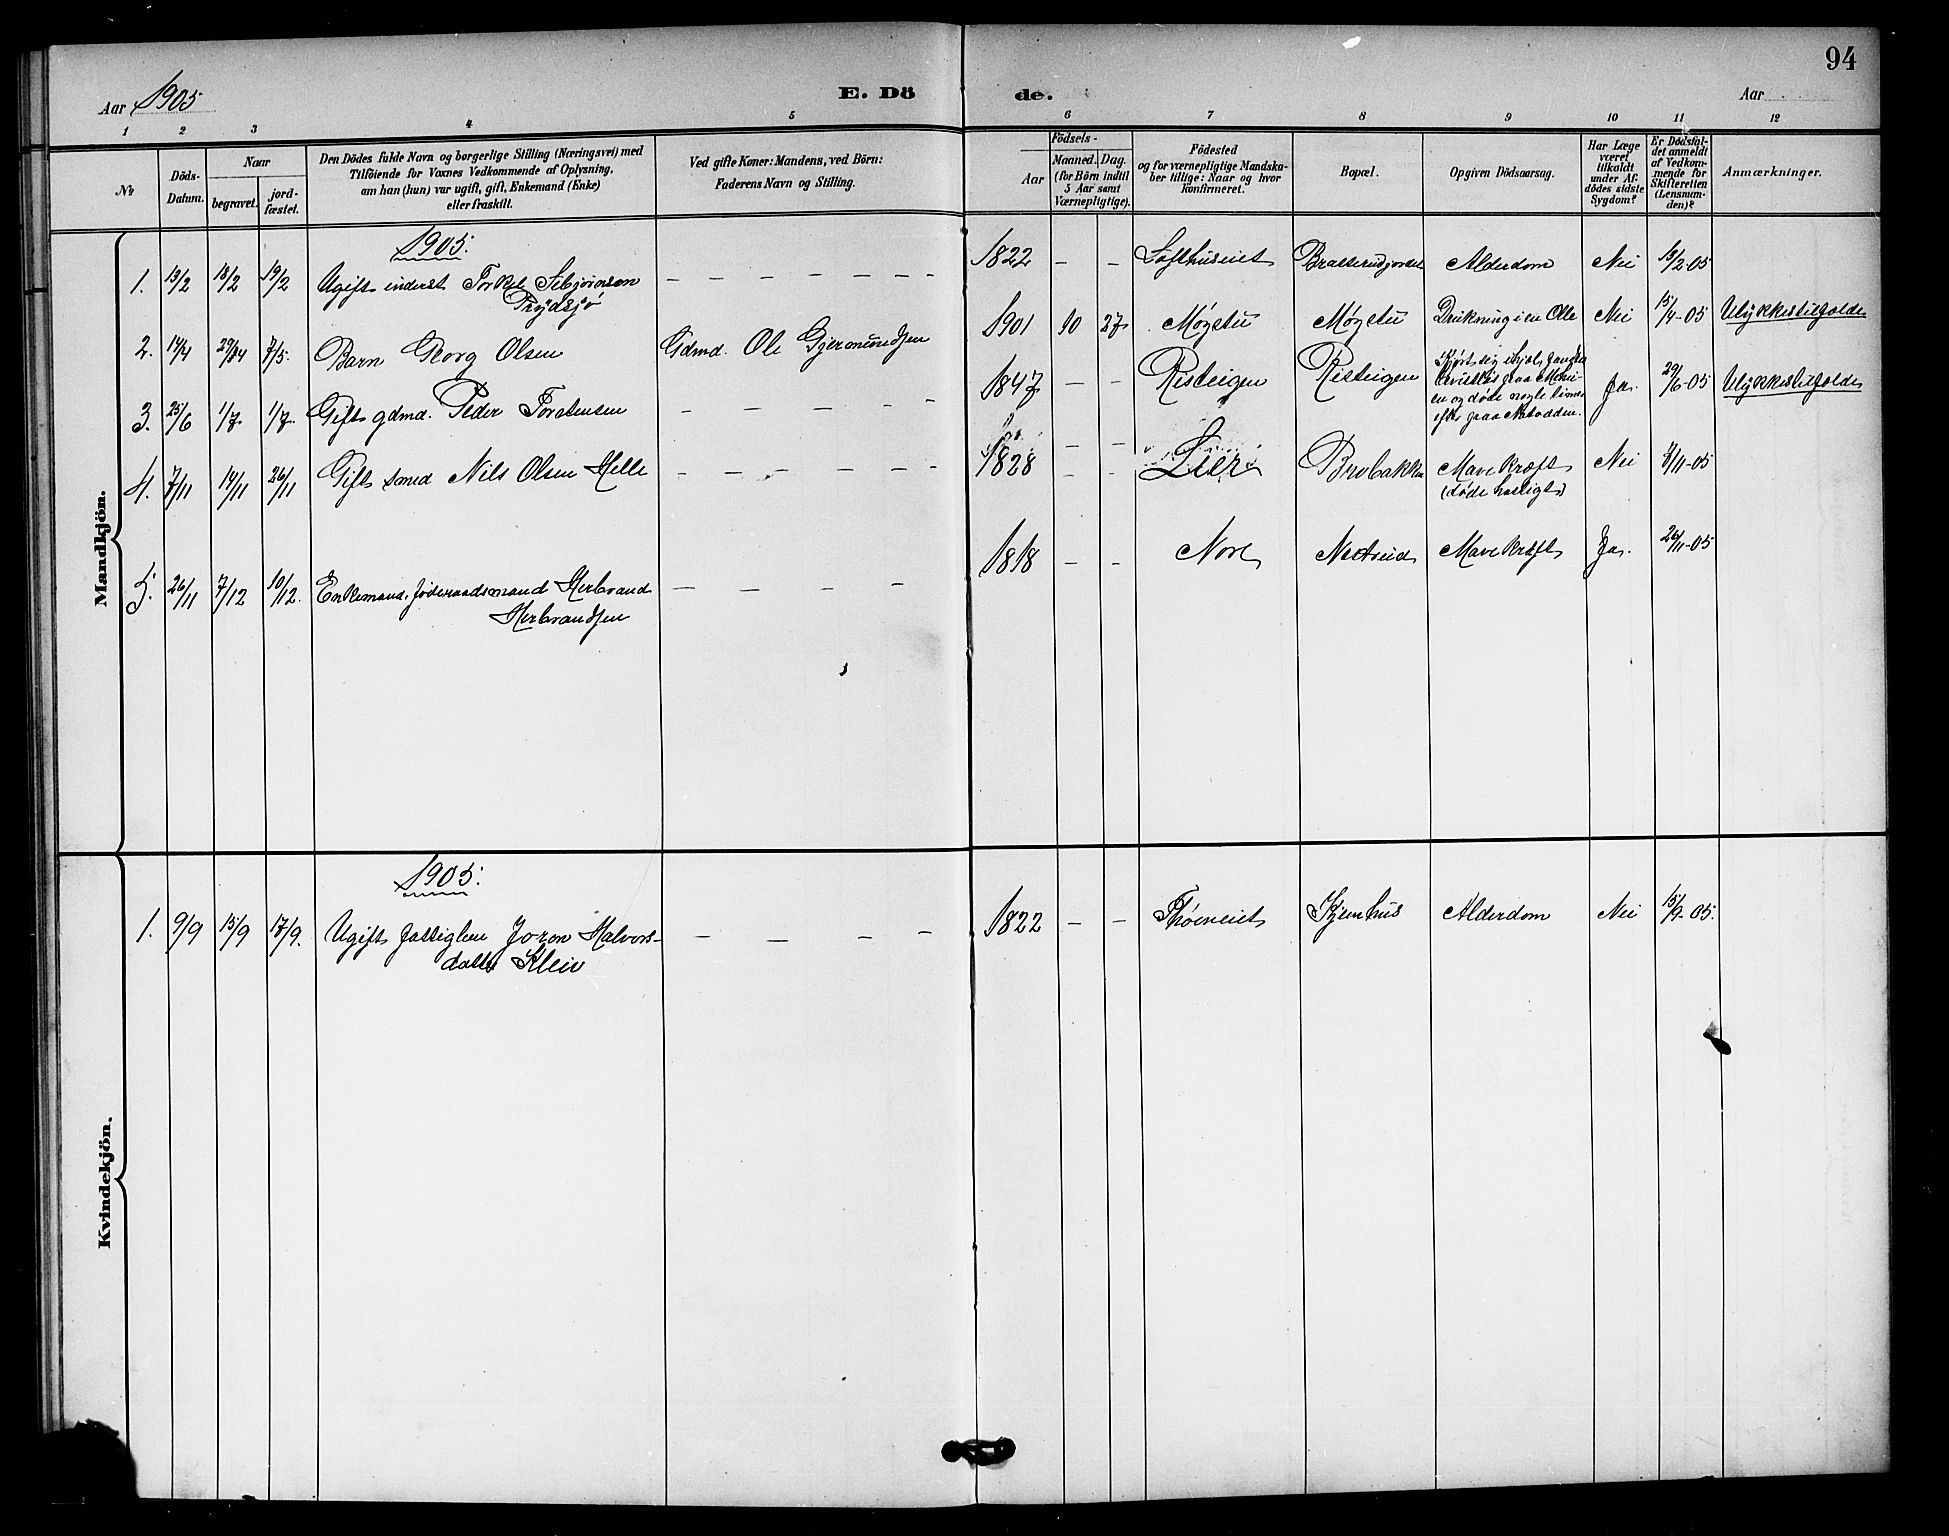 94
Aar 1905
E. Dö
de.
Aar
1 2 3 4 5 6 7 8 9 10 11 12
No
Döds-
Datum.
Naar
begravet.
jord-
fæstet.
Den Dödes fulde Navn og borgerlige Stilling (Næringsvei) med
Tilföiende for Voxnes Vedkommende af Oplysning,
om han (hun) var ugift, gift, Enkemand (Enke)
eller fraskilt.
Ved gifte Koner: Mandens, ved Börn:
Faderens Navn og Stilling.
Födsels-
Aar
Maaned. Dag.
(for Börn indtil
5 Aar samt
Værnepligtige).
Födested
og for værnepligtige Mandska-
ber tillige: Naar og hvor
Konfirmeret.
Bopæl.
Opgiven Dödsaarsag.
Har Læge
været
tilkaldt
under Af-
dödes sidste
Sygdom?
Er Dödsfal-
det anmeldt
af Vedkom-
mende for
Skifteretten
(Lensman-
den)?
Anmærkninger.
Mandkjön.
1905.
1. 13/2 18/2 19/2 Ugift inderst Torkel Sebjørnsen
Prydsjø
1822 – – Lofthuseiet Bratterudjordet Alderdom Nei 13/2-05
2. 14/4 29/4 7/5. Barn Georg Olsen Gdmd. Ole Gjermundsen
1901 10 27 Møgstu Møgstu Drukning i en Olle Nei 15/4-05 Ulykkestilfælde
3. 25/6 1/7 1/7. Gift gdmd. Peder Torstensen
1847 – – Risteigen Risteigen
en og døde nogle timer
efter paa Notodden.
Ja. 29/6-05 Ulykkestilfælde
4. 7/11 14/11 26/11 Gift smed Nils Olsen Helle
1828 – – Lier Brobakken Mavekræft
(døde hastigt)
Nei 8/11-05
5. 26/11 7/12 10/12. Enkemand, føderaadsmand Herbrand
Herbrandsen
1818 – – Nore Mavekræft Ja. 26/11-05
Kvindekjön.
1905.
1. 9/9 15/9 17/9. Ugift fattiglem Joron Halvors-
datter Kleiv
1822 – – Kjemhus Alderdom Nei 15/9-05.